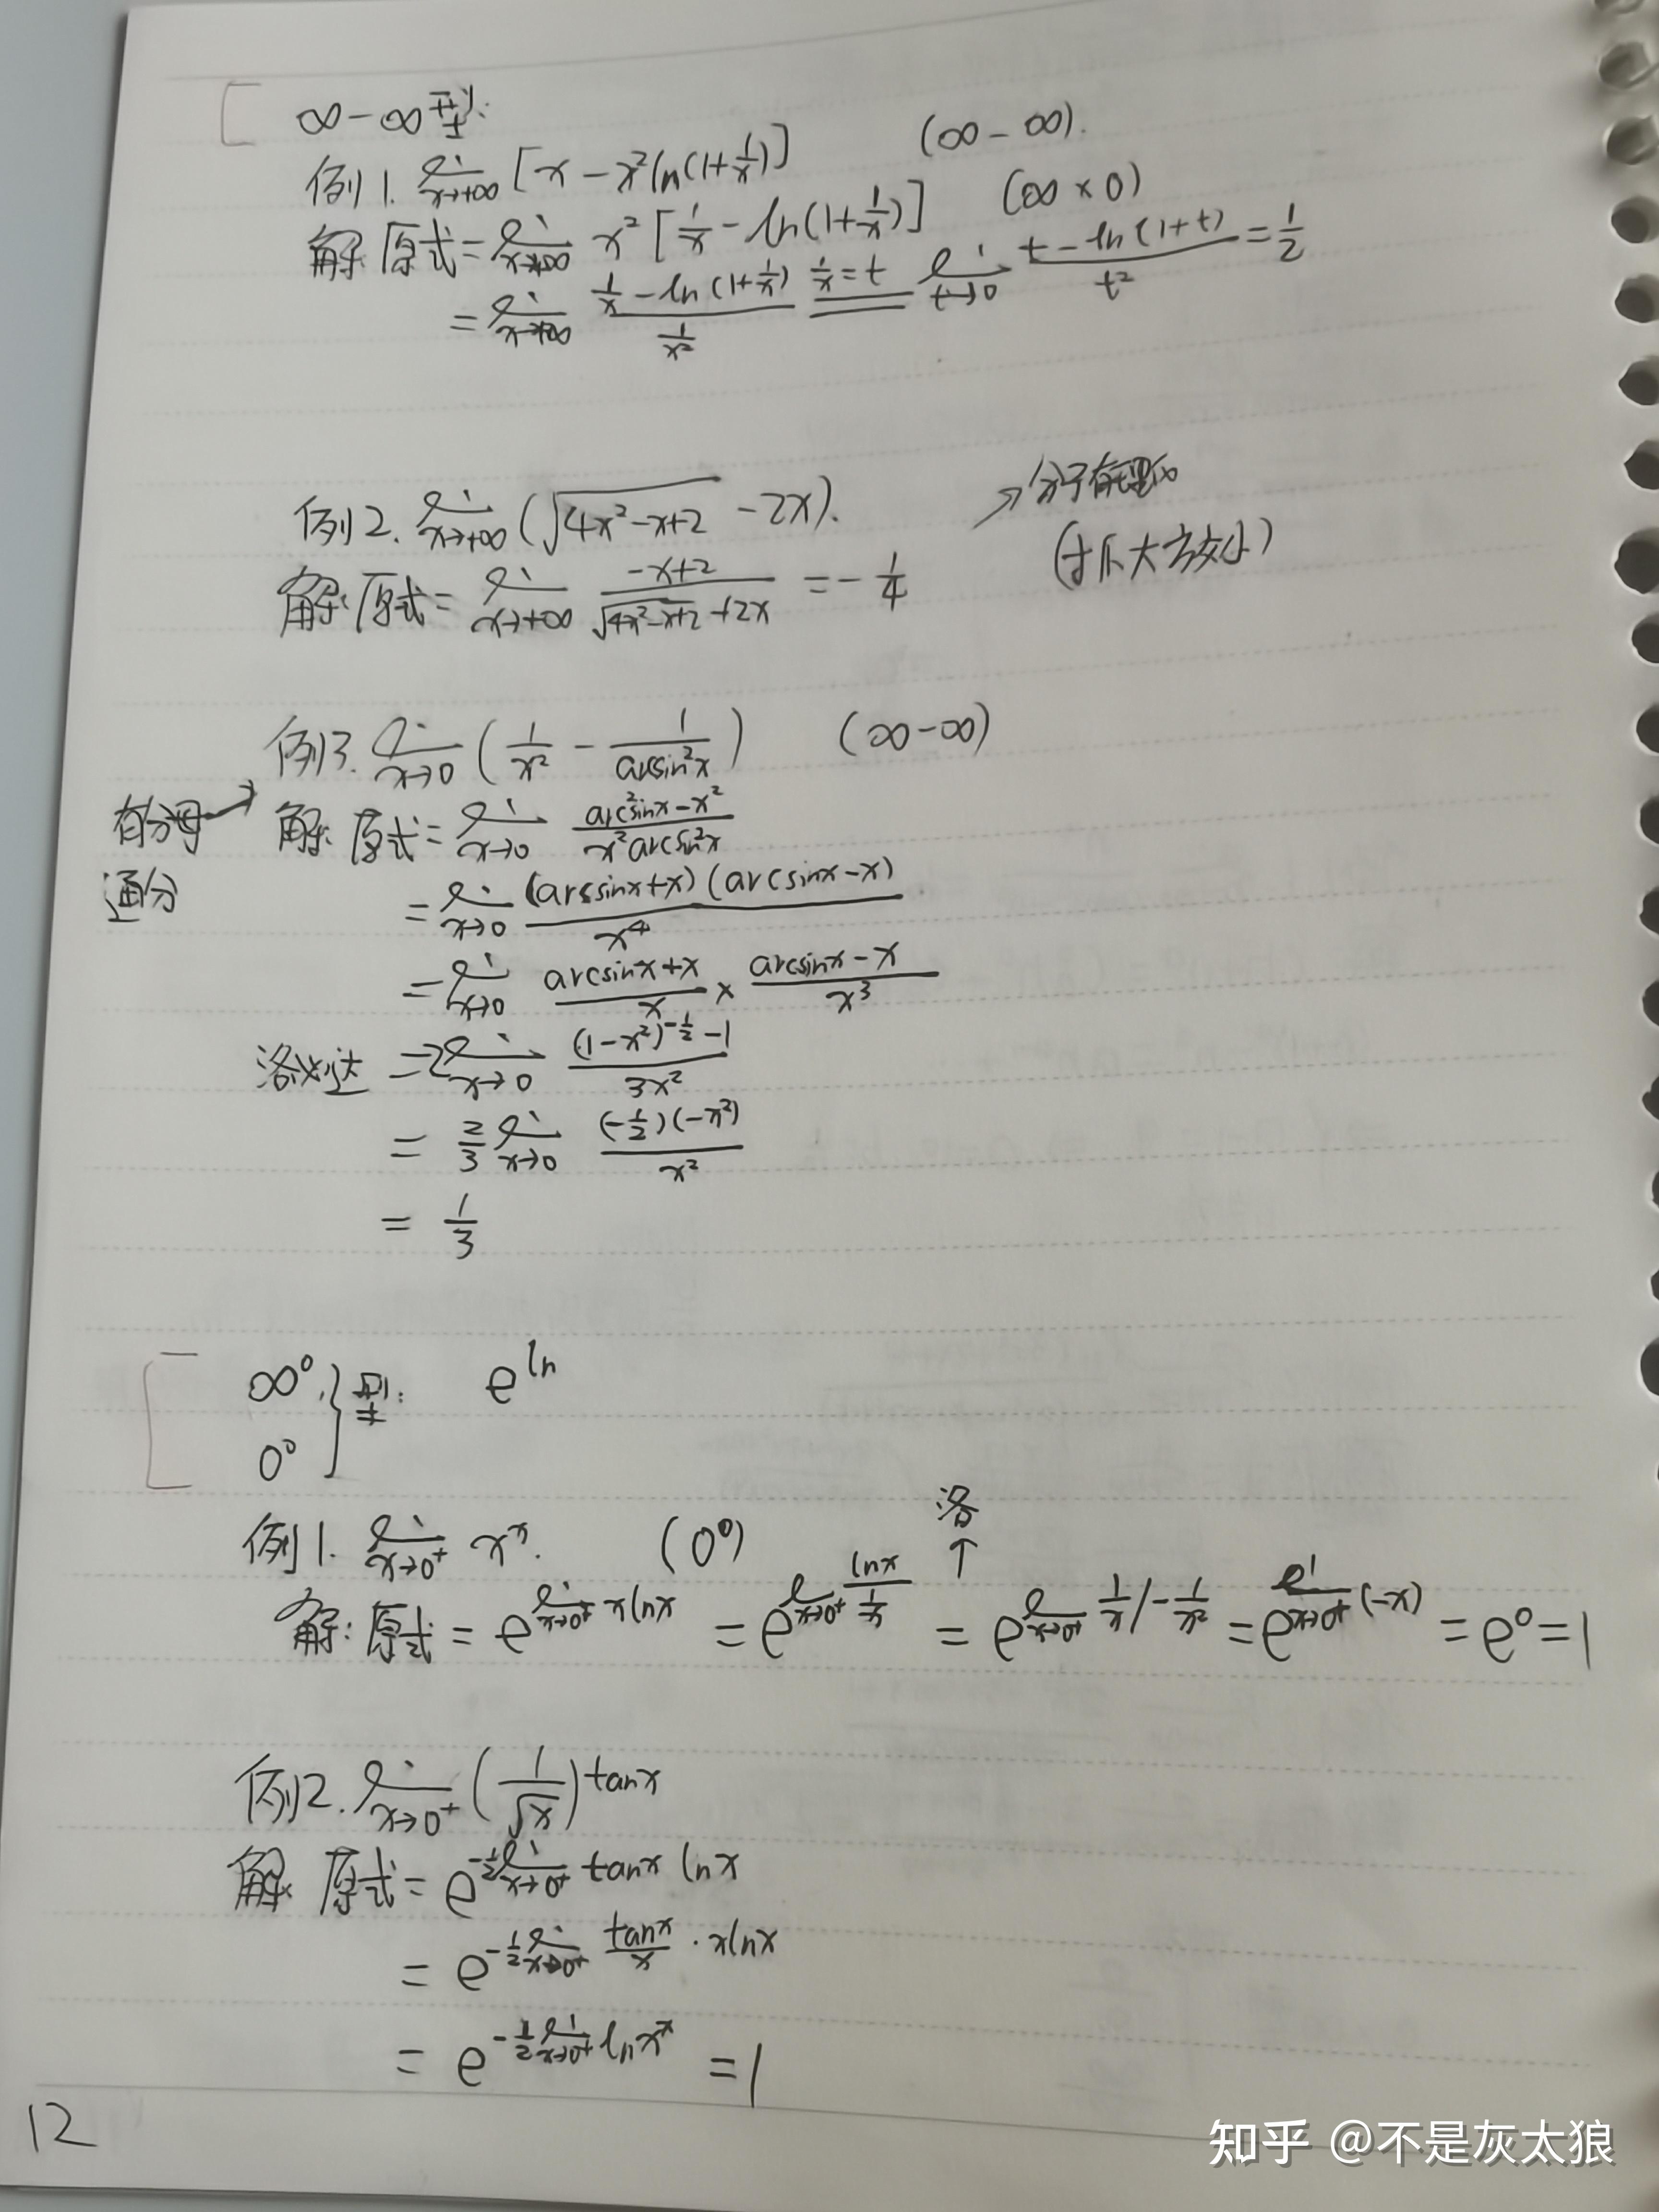 ∞-∞型:
例1. lim x→+∞ [x - x²ln(1+1/x)] (∞-∞).
解: 原式 = lim x→+∞ x²[1/x - ln(1+1/x)] (∞×0)
= lim x→+∞ (1/x - ln(1+1/x))/(1/x²) (1/x=t) = lim t→0 (t - ln(1+t))/t² = 1/2
例2. lim x→+∞ (√(4x²-x+2) - 2x). → 分子有理化
(抓大放小)
解: 原式 = lim x→+∞ (-x+2)/(√(4x²-x+2)+2x) = -1/4
例3. lim x→0 (1/x² - 1/arcsin²x) (∞-∞)
有分母→
通分
解: 原式 = lim x→0 (arc²sinx - x²)/(x²arcsin²x)
= lim x→0 (arcsinx+x)(arcsinx-x)/x⁴
= lim x→0 (arcsinx+x)/x × (arcsinx-x)/x³
洛必达 = 2lim x→0 ((1-x²)^(-1/2) - 1)/3x²
= 2/3 lim x→0 (-1/2)(-x²)/x²
= 1/3
∞⁰, 0⁰ } 型: e^ln
例1. lim x→0⁺ x^x. (0⁰) 洛↑
解: 原式 = e^(lim x→0⁺ xlnx) = e^(lim x→0⁺ lnx/(1/x)) = e^(lim x→0⁺ 1/x / -1/x²) = e^(lim x→0⁺ (-x)) = e⁰ = 1
例2. lim x→0⁺ (1/√x)^tanx
解: 原式 = e^(-1/2 lim x→0⁺ tanx lnx)
= e^(-1/2 lim x→0⁺ tanx/x · xlnx)
= e^(-1/2 lim x→0⁺ lnx^x) = 1
12
知乎 @不是灰太狼